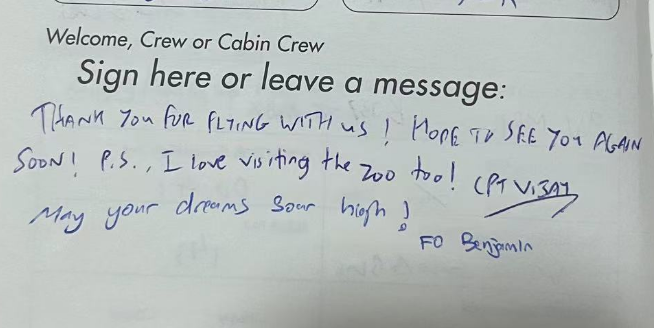 Welcome, Crew or Cabin Crew
Sign here or leave a message:
THANK YOU FOR FLYING WITH US! HOPE TO SEE YOU AGAIN
SOON! P.S., I love visiting the zoo too! CPT VIJAY
May your dreams soar high!
FO Benjamin